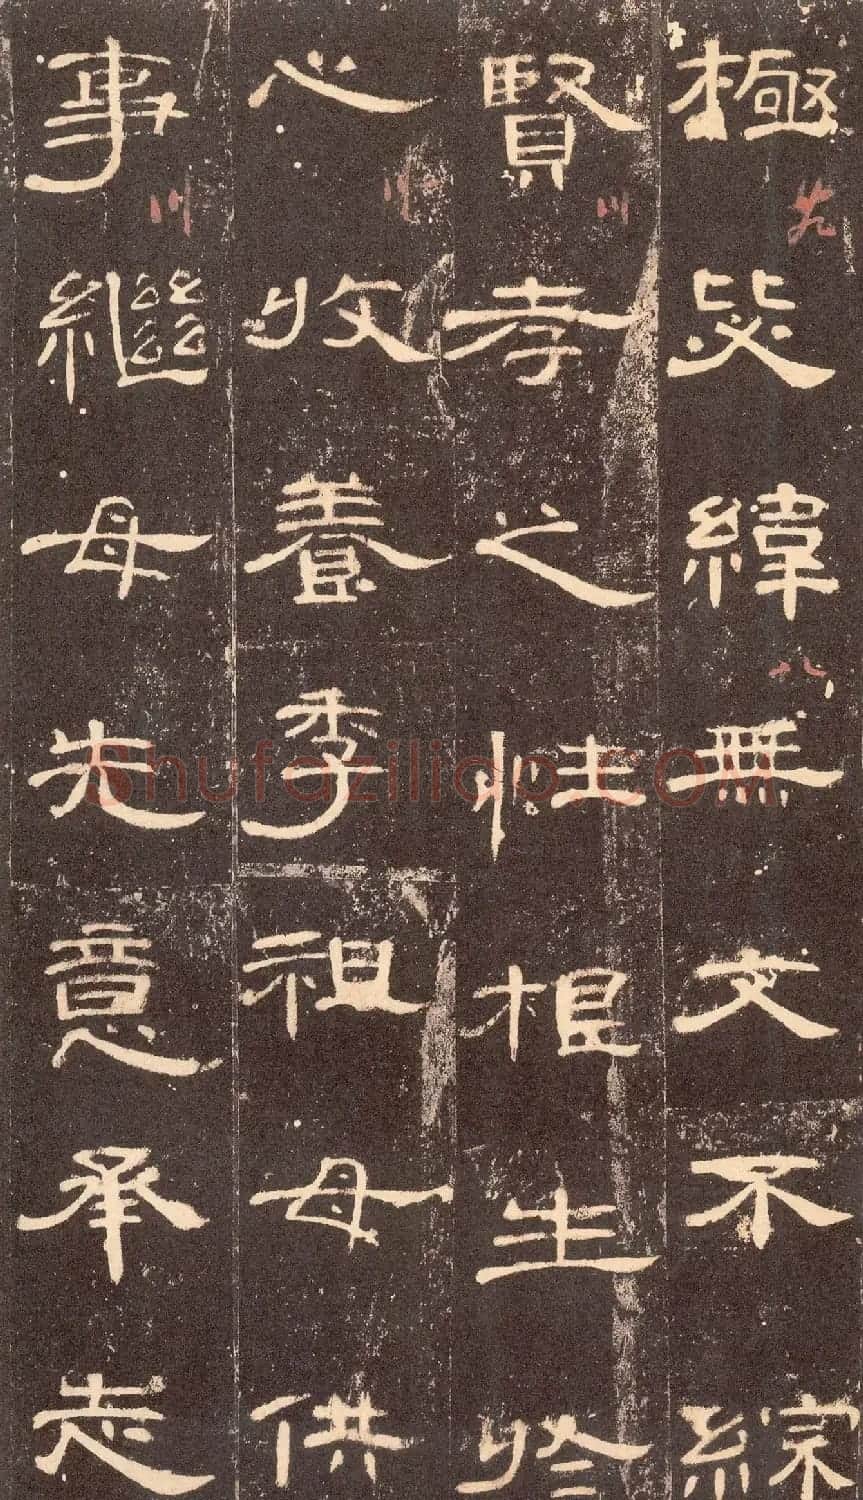 極毖緯無文不綜
賢孝之性根生於
心收養季祖母供
事繼母先意承志
Shufaziliao.COM